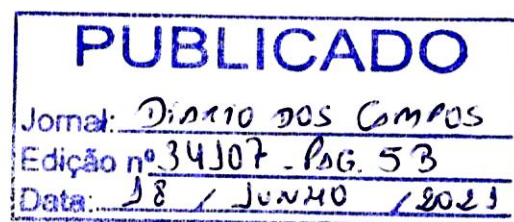 PUBLICADO
Jornal: DIARIO DOS CAMPOS
Edição nº 34107 - PAG. 5B
Data: 18 / JUNHO / 2021